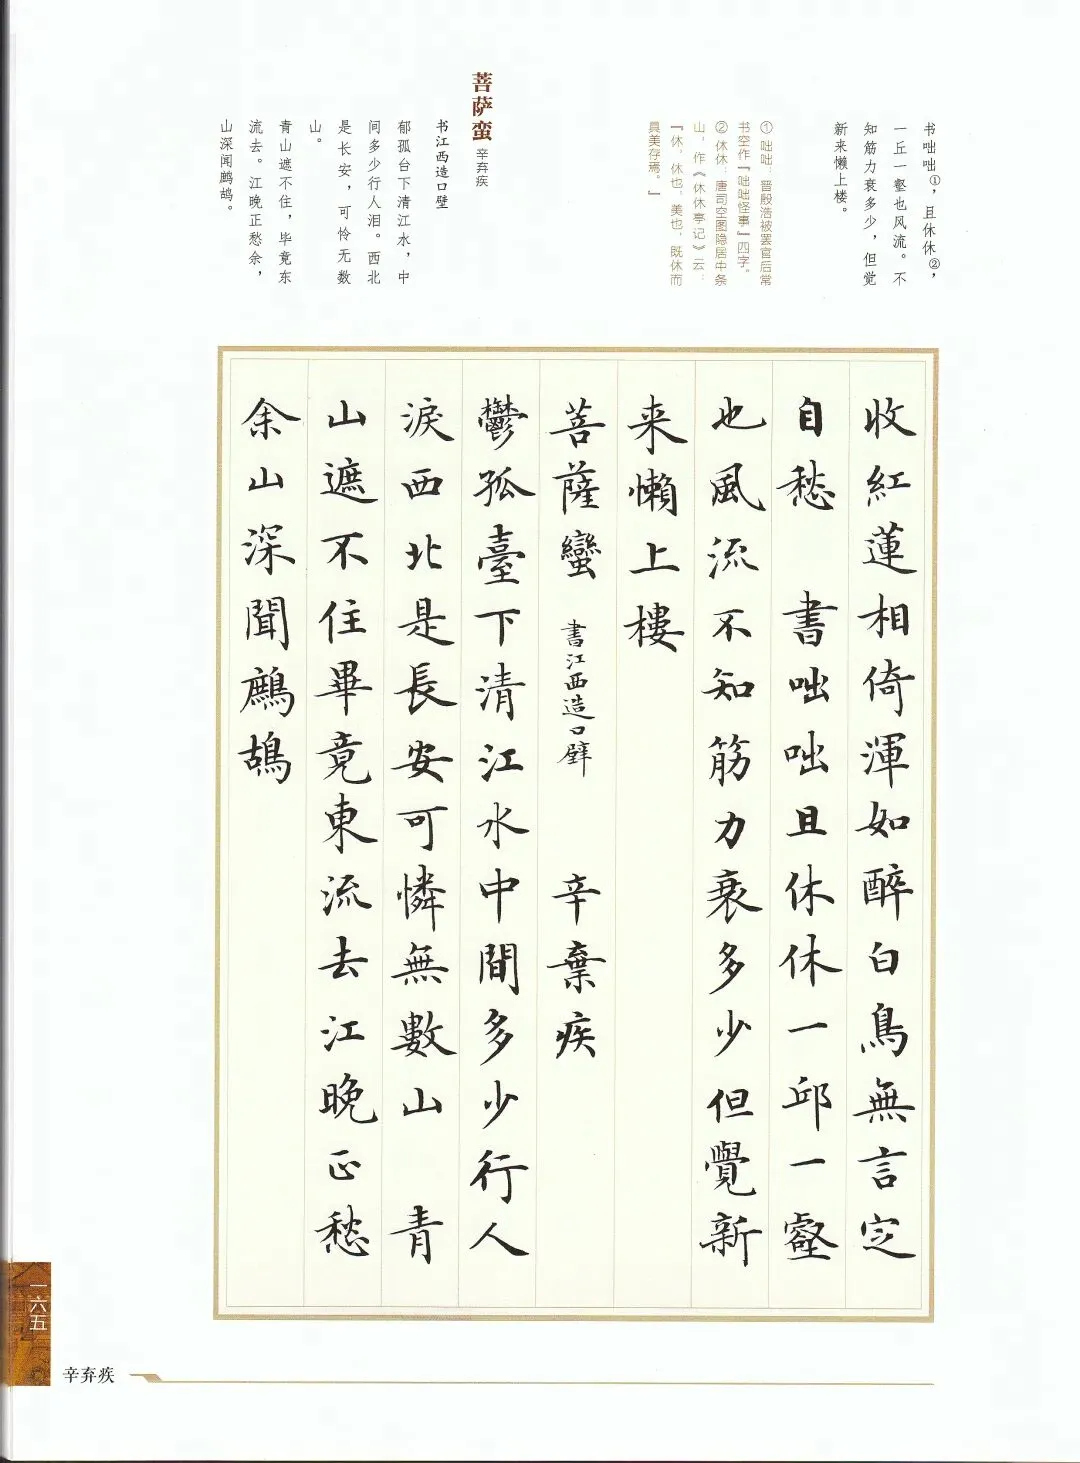 书咄咄①，且休休②，
一丘一壑也风流。不
知筋力衰多少，但觉
新来懒上楼。
① 咄咄：晋殷浩被罢官后常
书空作『咄咄怪事』四字。
② 休休：唐司空图隐居中条
山，作《休休亭记》云：
『休，休也，美也，既休而
具美存焉。』
菩萨蛮 辛弃疾
书江西造口壁
郁孤台下清江水，中
间多少行人泪。西北
是长安，可怜无数
山。
青山遮不住，毕竟东
流去。江晚正愁余，
山深闻鹧鸪。
收紅蓮相倚渾如醉白鳥無言定
自愁 書咄咄且休休一邱一壑
也風流不知筋力衰多少但覺新
来懶上樓
菩薩蠻 書江西造口壁 辛棄疾
鬱孤臺下清江水中間多少行人
淚西北是長安可憐無數山 青
山遮不住畢竟東流去江晚正愁
余山深聞鷓鴣
一六五
辛弃疾